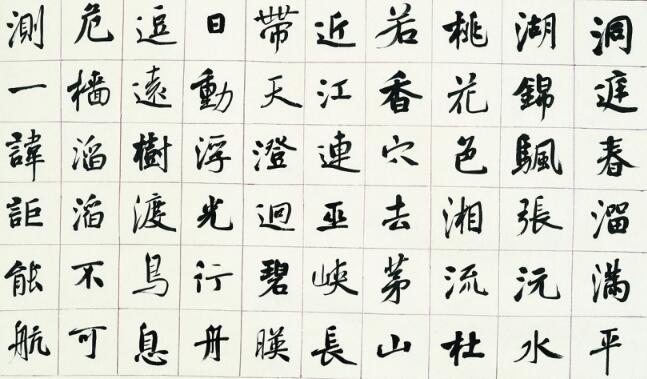 洞庭春溜滿平
湖錦颿張沅水
桃花色湘流杜
若香穴去茅山
近江連巫峽長
帶天澄迥碧暎
日動浮光行舟
逗遠樹渡鳥息
危檣滔滔不可
測一諱詎能航